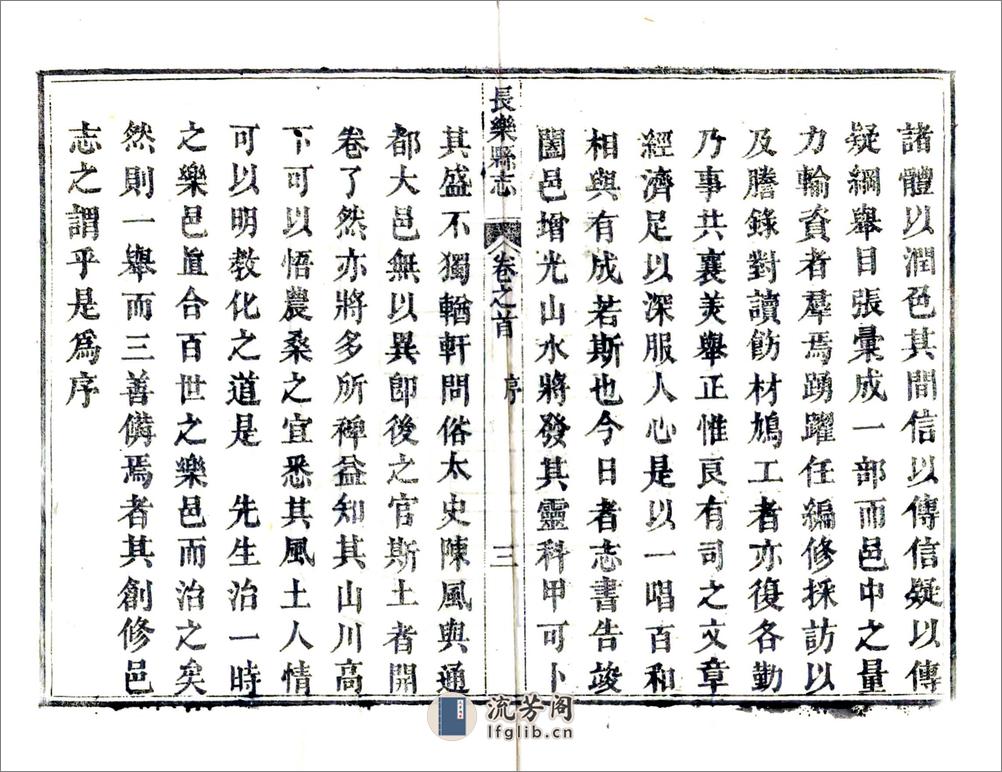 諸體以潤色其間信以傳信疑以傳
疑綱舉目張彙成一部而邑中之量
力輸資者羣焉踴躍任編修採訪以
及謄錄對讀飭材鳩工者亦復各勤
乃事共襄美舉正惟良有司之文章
經濟足以深服人心是以一唱百和
相與有成若斯也今日者志書告竣
闔邑增光山水將發其靈科甲可卜
長樂縣志 卷之首 序 三
其盛不獨輶軒問俗太史陳風與通
都大邑無以異卽後之官斯土者開
卷了然亦將多所裨益知其山川高
下可以悟農桑之宜悉其風土人情
可以明教化之道是 先生治一時
之樂邑直合百世之樂邑而治之矣
然則一舉而三善備焉者其創修邑
志之謂乎是爲序
流芳阁
lfglib.cn